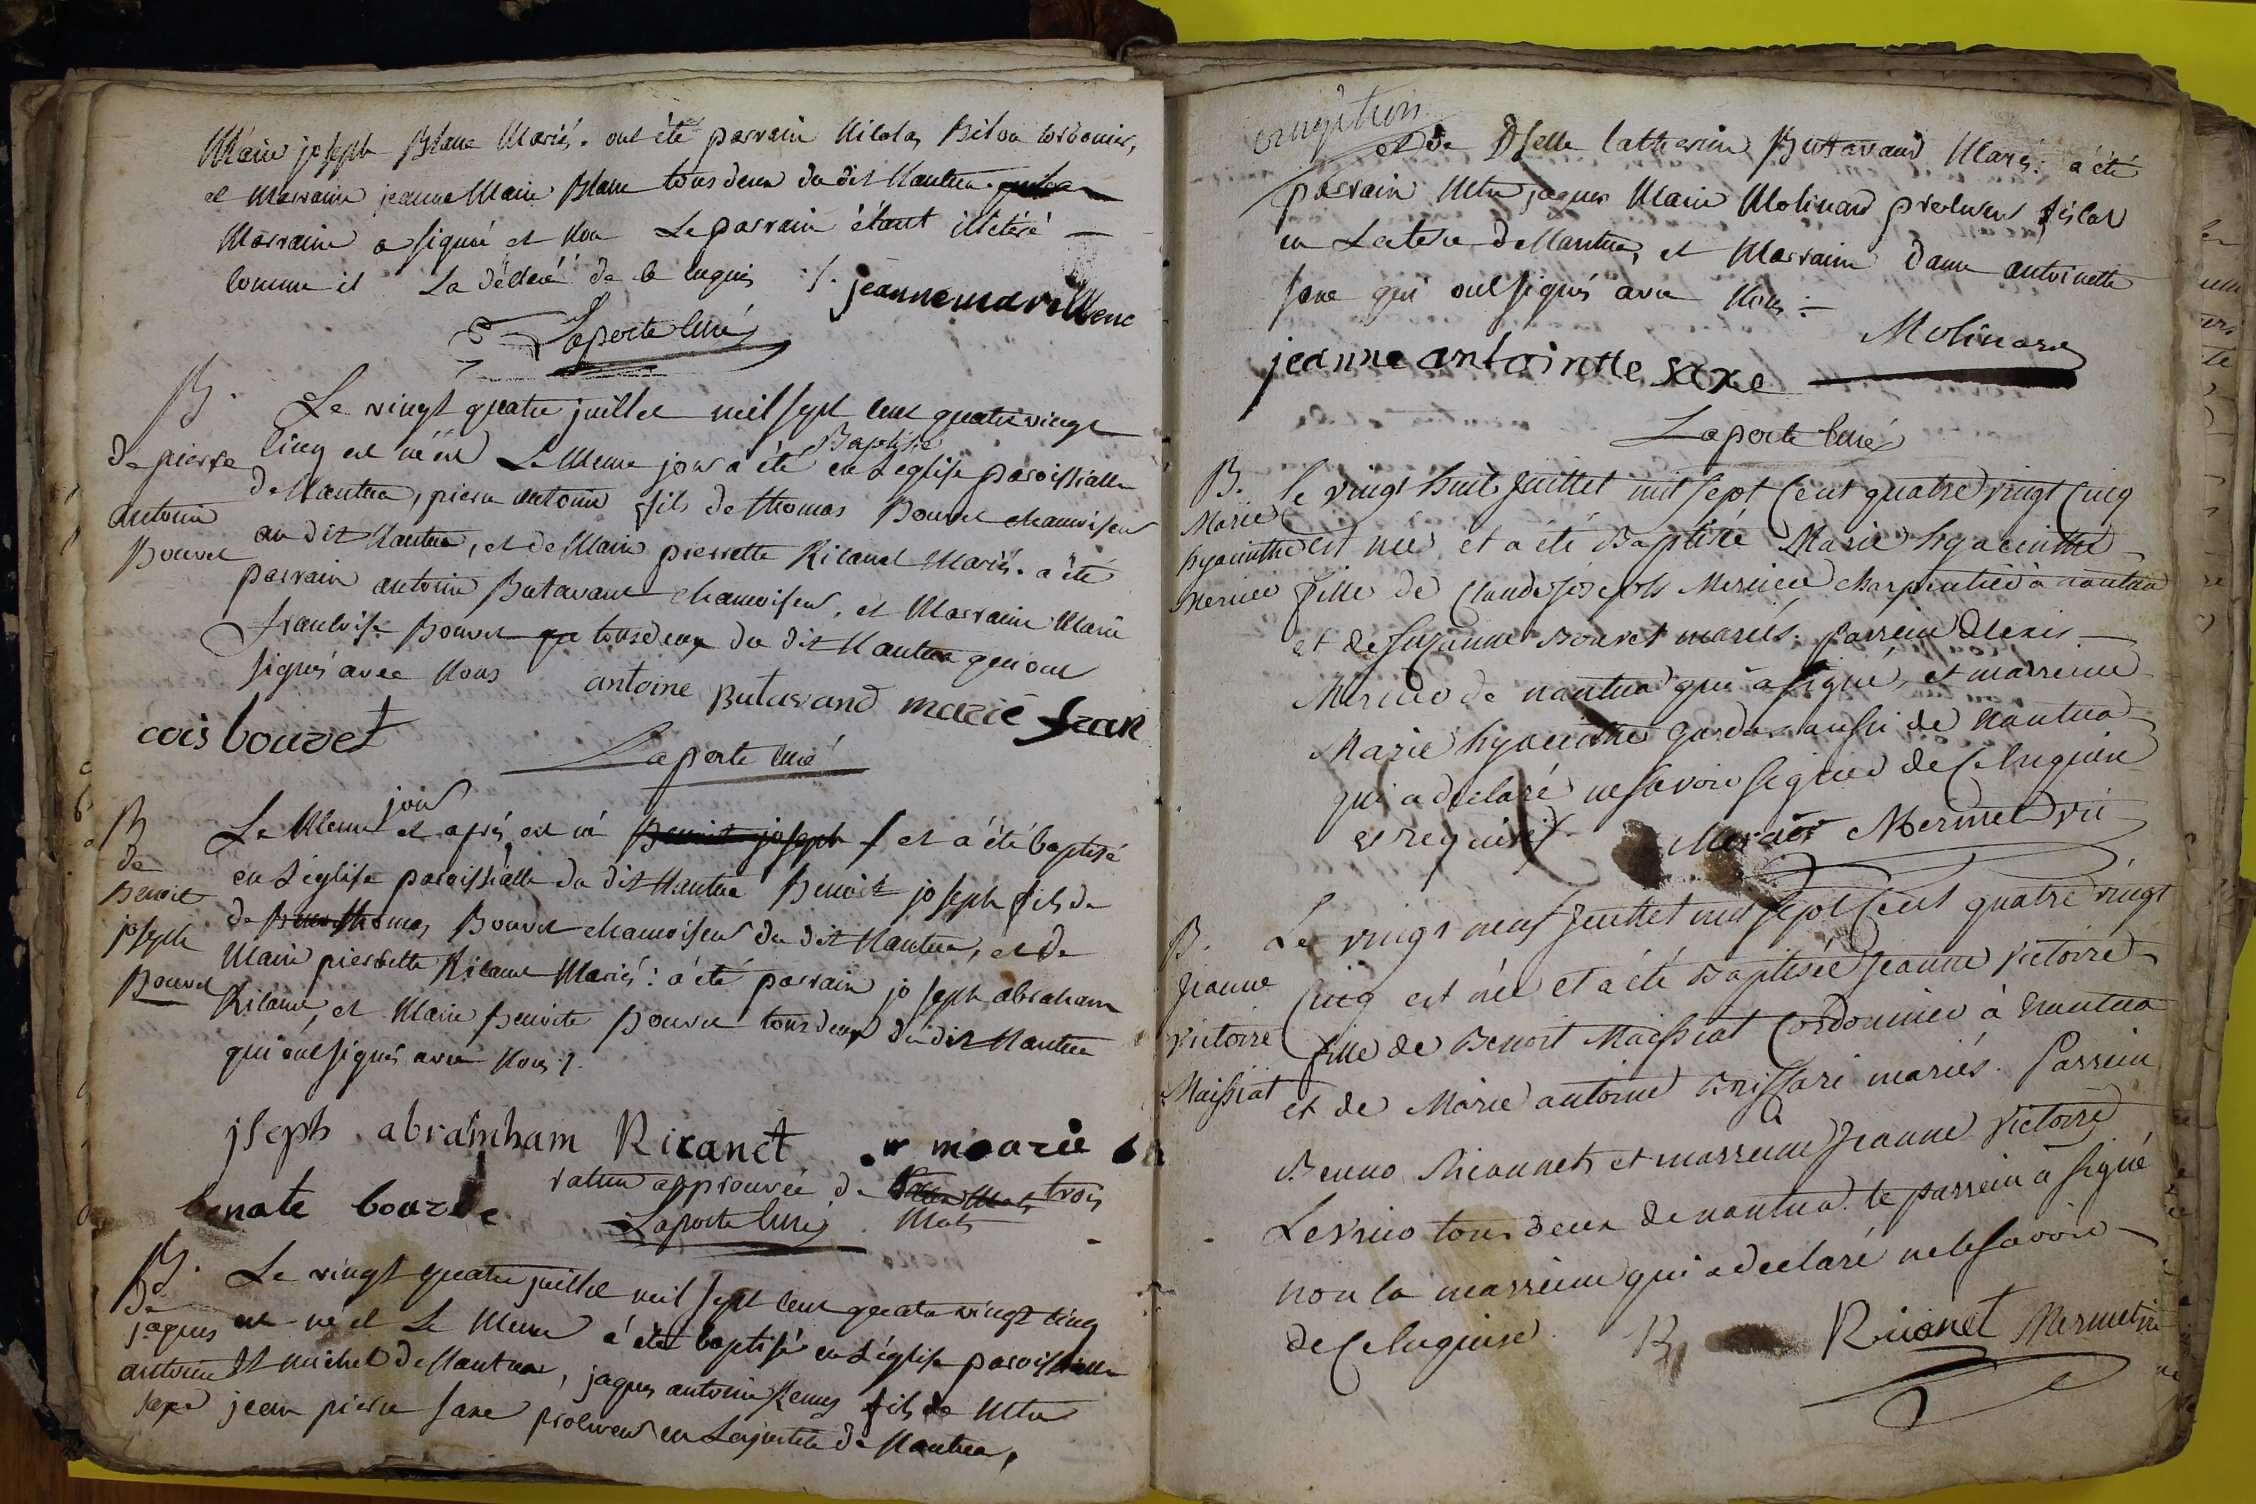 Marie joseph Blanc Mariés. ont été parrain Nicolas Bilon cordonier,
et Marraine jeanne Marie Blanc tous deux du dit Nantua
Marraine a signé et non Le parrain étant illétéré
comme il La déclaré de ce enquis /. jeanne mari blenc
Laporte Curé
B.
de pierre
antoine
Bouvet
Le vingt quatre juillet mil sept cent quatre vingt
cinq est né et Le Meme jour a été Baptisé en L'église paroissialle
de Nantua, pierre antoine fils de thomas Bouvet chamoiseur
au dit Nantua, et de Marie pierrette Ricanet Mariés. a été
parrain antoine Butavant chamoiseur, et Marraine Marie
francoise Bouvet tous deux du dit Nantua qui ont
signés avec Nous antoine Butavand marie fran
cois bouvet
Laporte Curé
B
de
Benoit
joseph
Bouvet
Le Meme jour et après est né Benoit joseph / et a été baptisé
en L'église paroissialle du dit Nantua Benoit joseph fils de
de thomas Bouvet chamoiseur du dit Nantua, et de
Marie pierrette Ricanet Mariés: a été parrain joseph abraham
Ricanet, et Marie Benoite Bouvet tous deux du dit Nantua
qui ont signés avec Nous /.
jseph abramham Ricanet marie
benate bouvet
rature approuvée de trois
Mots
Laporte Curé
B.
de
jaques
antoine
saxe
Le vingt quatre juillet mil sept cent quatre vingt cinq
est né et Le Meme a été baptisé en L'église paroissialle
St michel de Nantua, jaques antoine Remy fils de Mtre
jean pierre saxe procureur en Lajustice de Nantua,
et de Dselle Catherine Butavand Mariés: a été
parrain Mtre jaques Marie Molinard procureur fiscal
en La terre de Nantua, et Marraine dame antoinette
saxe qui ont signés avec Nous:
Molinard
jeanne antoinette saxe
Laporte Curé
B.
Marie
hyacinthe
Mercier
Le vingt huit juillet mil sept Cent quatre vingt Cinq
est née et a été Baptisée Marie hyacinthe
fille de Claude joseph Mercier charpentier à nantua
et de Suzanne Bouvet mariés. Parrein Alexis
Mercier de nantua qui a signé, et marreine
Marie hyacinthe aussi de Nantua
qui a déclaré ne savoir signer de Ce enquise
et requise /. Mercier Mermet vic
B.
Jeanne
Victoire
Maissiat
Le vingt neuf Juillet mil sept Cent quatre vingt
Cinq est née et a été Baptisée Jeanne Victoire
fille de Benoit Maissiat Cordonnier à Nantua
et de Marie antoine mariés. Parrein
Benno Ricannet, et marreine Jeanne Victoire
tous deux de nantua. le parrein a signé
non la marreine qui a déclaré ne le savoir
de Ce enquise. Ricanet Mermet vic